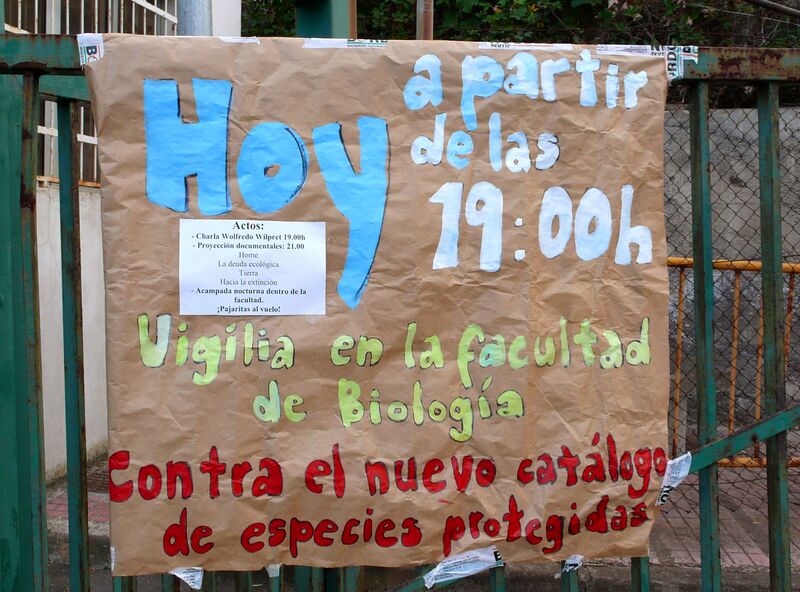 Hoy
a partir
de las
19:00h
Actos:
- Charla Wolfredo Wilpret 19.00h
- Proyección documentales: 21.00
Home
La deuda ecológica
Tierra
Hacia la extinción
- Acampada nocturna dentro de la
facultad.
¡Pajaritas al vuelo!
Vigilia en la facultad
de Biología
Contra el nuevo catálogo
de especies protegidas